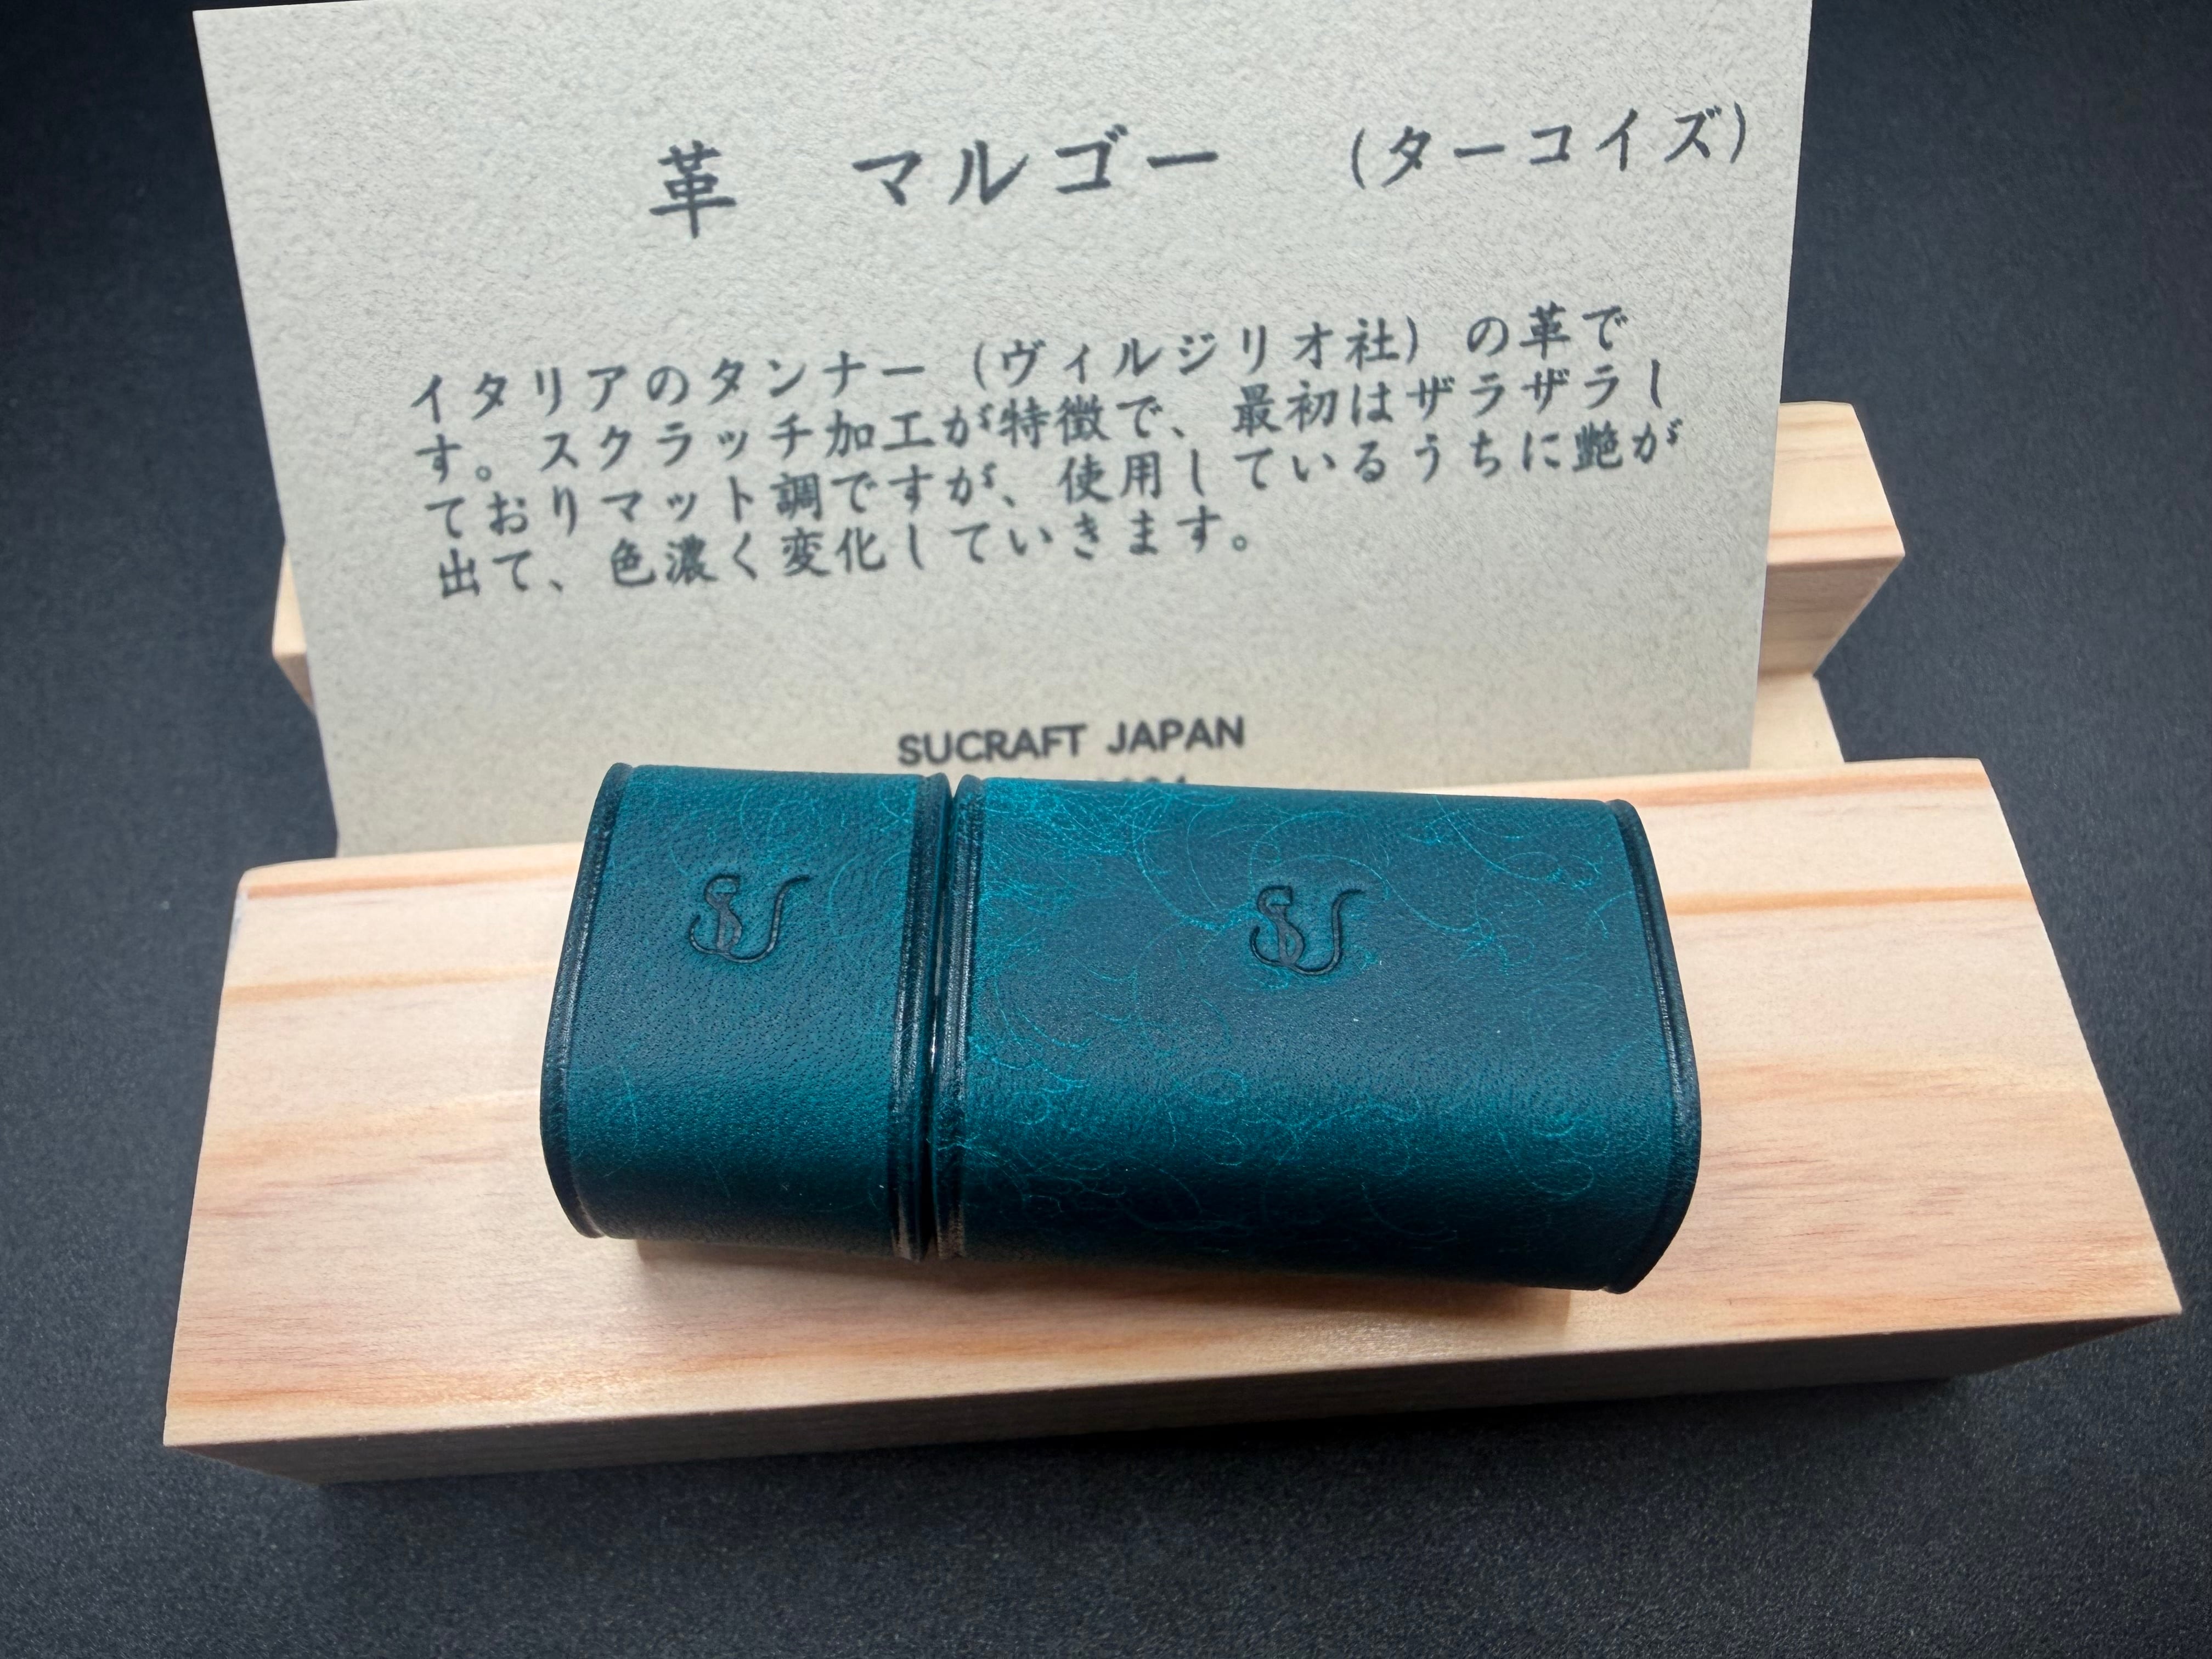 革　マルゴー　（ターコイズ）
イタリアのタンナー（ヴィルジリオ社）の革で
す。スクラッチ加工が特徴で、最初はザラザラし
ておりマット調ですが、使用しているうちに艶が
出て、色濃く変化していきます。
SUCRAFT JAPAN
SU SU